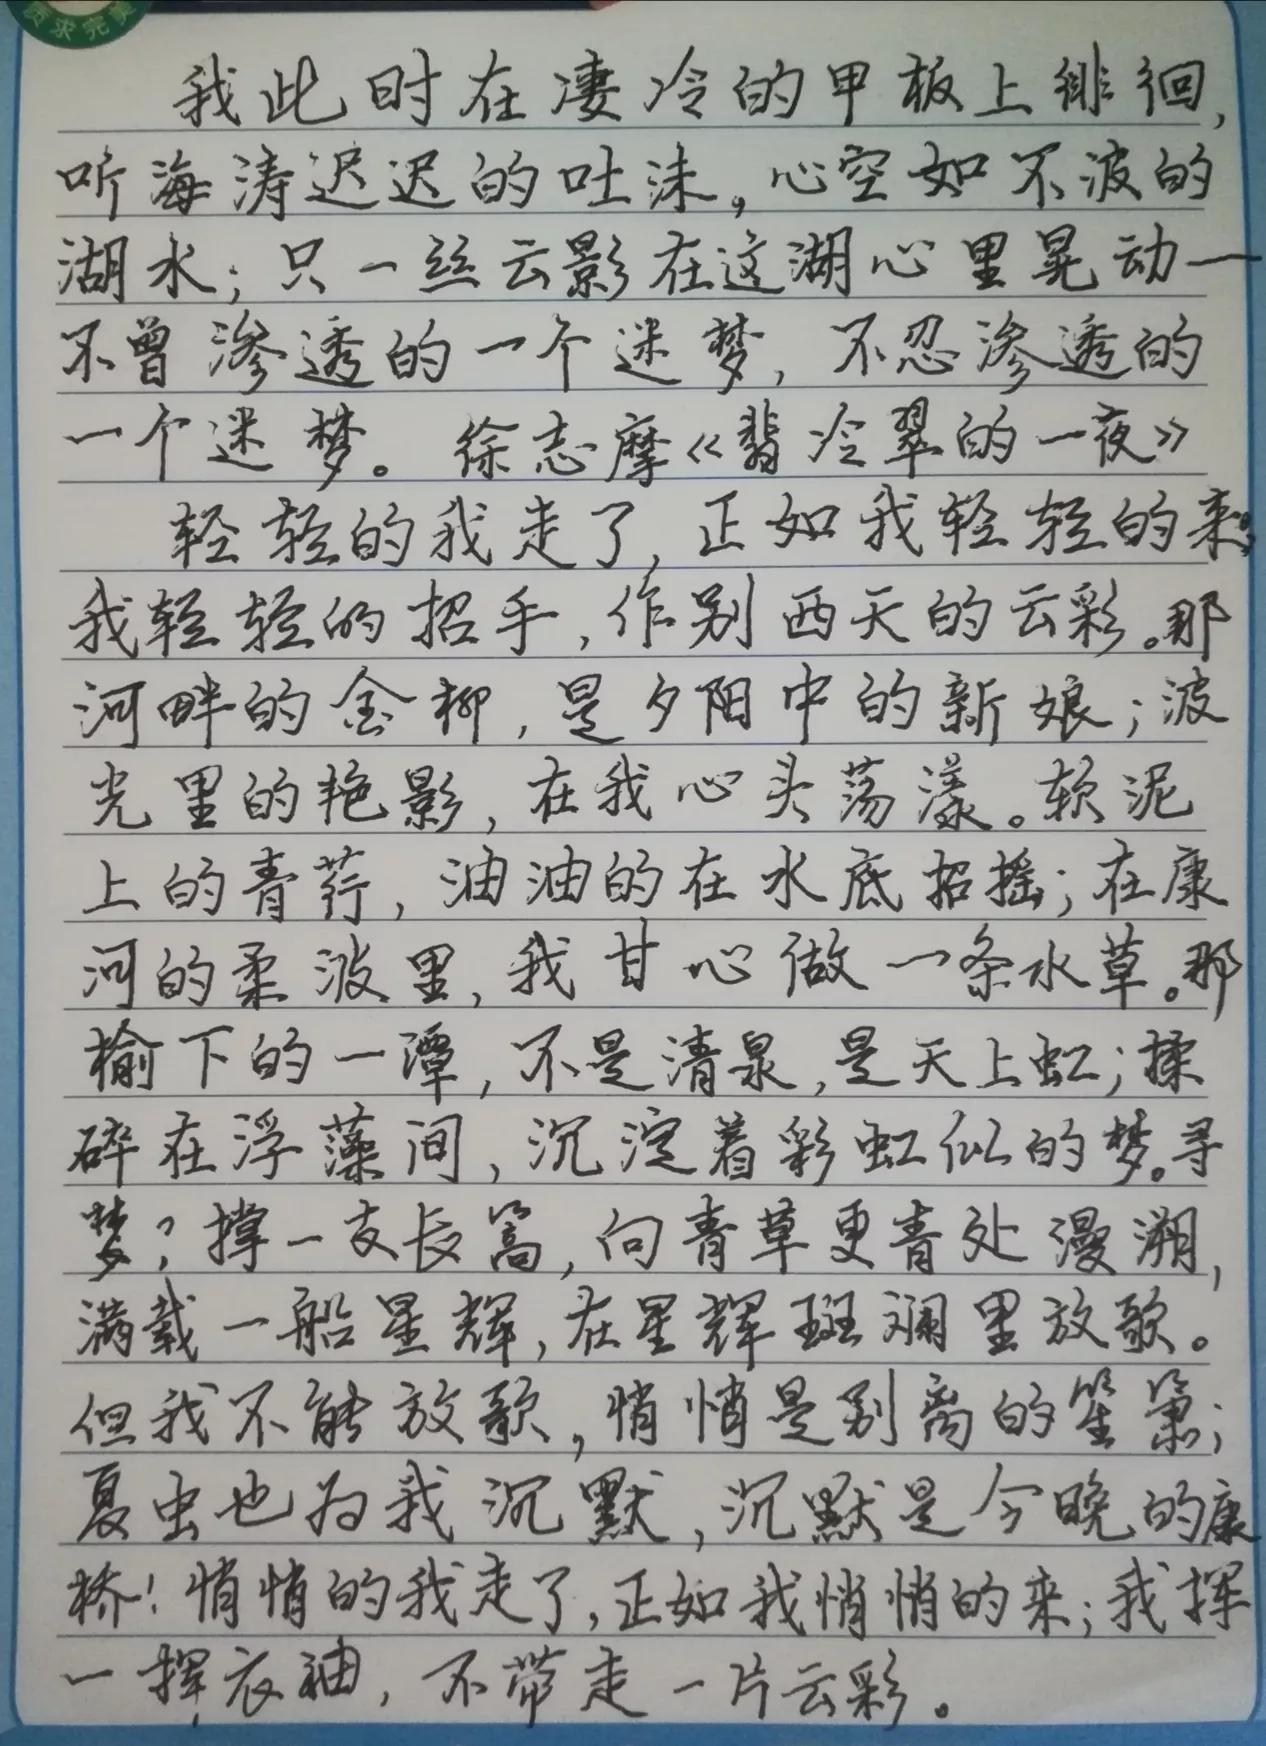 质求完美
我此时在凄冷的甲板上徘徊,
听海涛迟迟的吐沫,心空如不波的
湖水;只一丝云影在这湖心里晃动一
不曾渗透的一个迷梦,不忍渗透的
一个迷梦。徐志摩《翡冷翠的一夜》
轻轻的我走了,正如我轻轻的来;
我轻轻的招手,作别西天的云彩。那
河畔的金柳,是夕阳中的新娘;波
光里的艳影,在我心头荡漾。软泥
上的青荇,油油的在水底招摇;在康
河的柔波里,我甘心做一条水草。那
榆下的一潭,不是清泉,是天上虹;揉
碎在浮藻间,沉淀着彩虹似的梦。寻
梦?撑一支长篙,向青草更青处漫溯,
满载一船星辉,在星辉斑斓里放歌。
但我不能放歌,悄悄是别离的笙箫;
夏虫也为我沉默,沉默是今晚的康
桥!悄悄的我走了,正如我悄悄的来;我挥
一挥衣袖,不带走一片云彩。